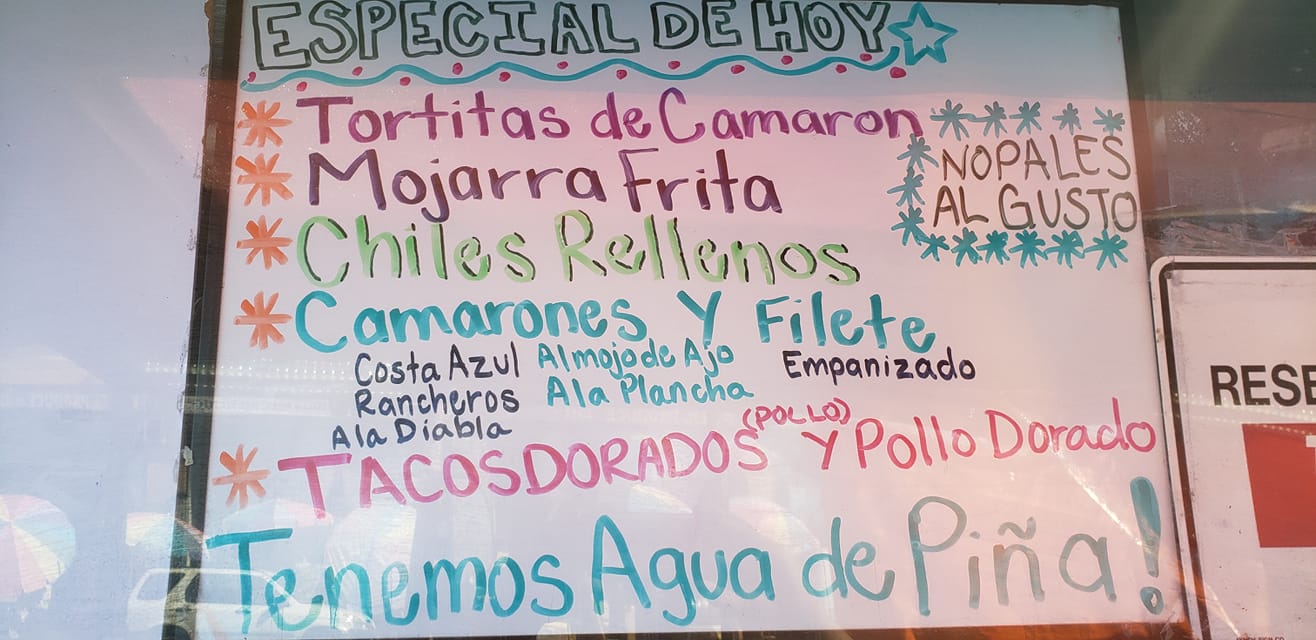 ESPECIAL DE HOY
Tortitas de Camaron
Mojarra Frita
Chiles Rellenos
NOPALES
AL GUSTO
Camarones Y Filete
Costa Azul Almojo de Ajo Empanizado
Rancheros Ala Plancha
Ala Diabla
TACOS DORADOS (POLLO) Y Pollo Dorado
Tenemos Agua de Piña!